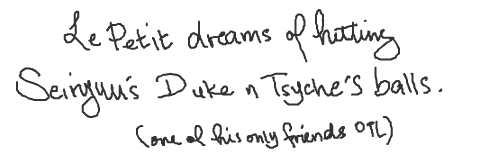 Le Petit dreams of hitting
Seiryuu's Duke n Tsyche's balls.
(one of his only friends OTL)